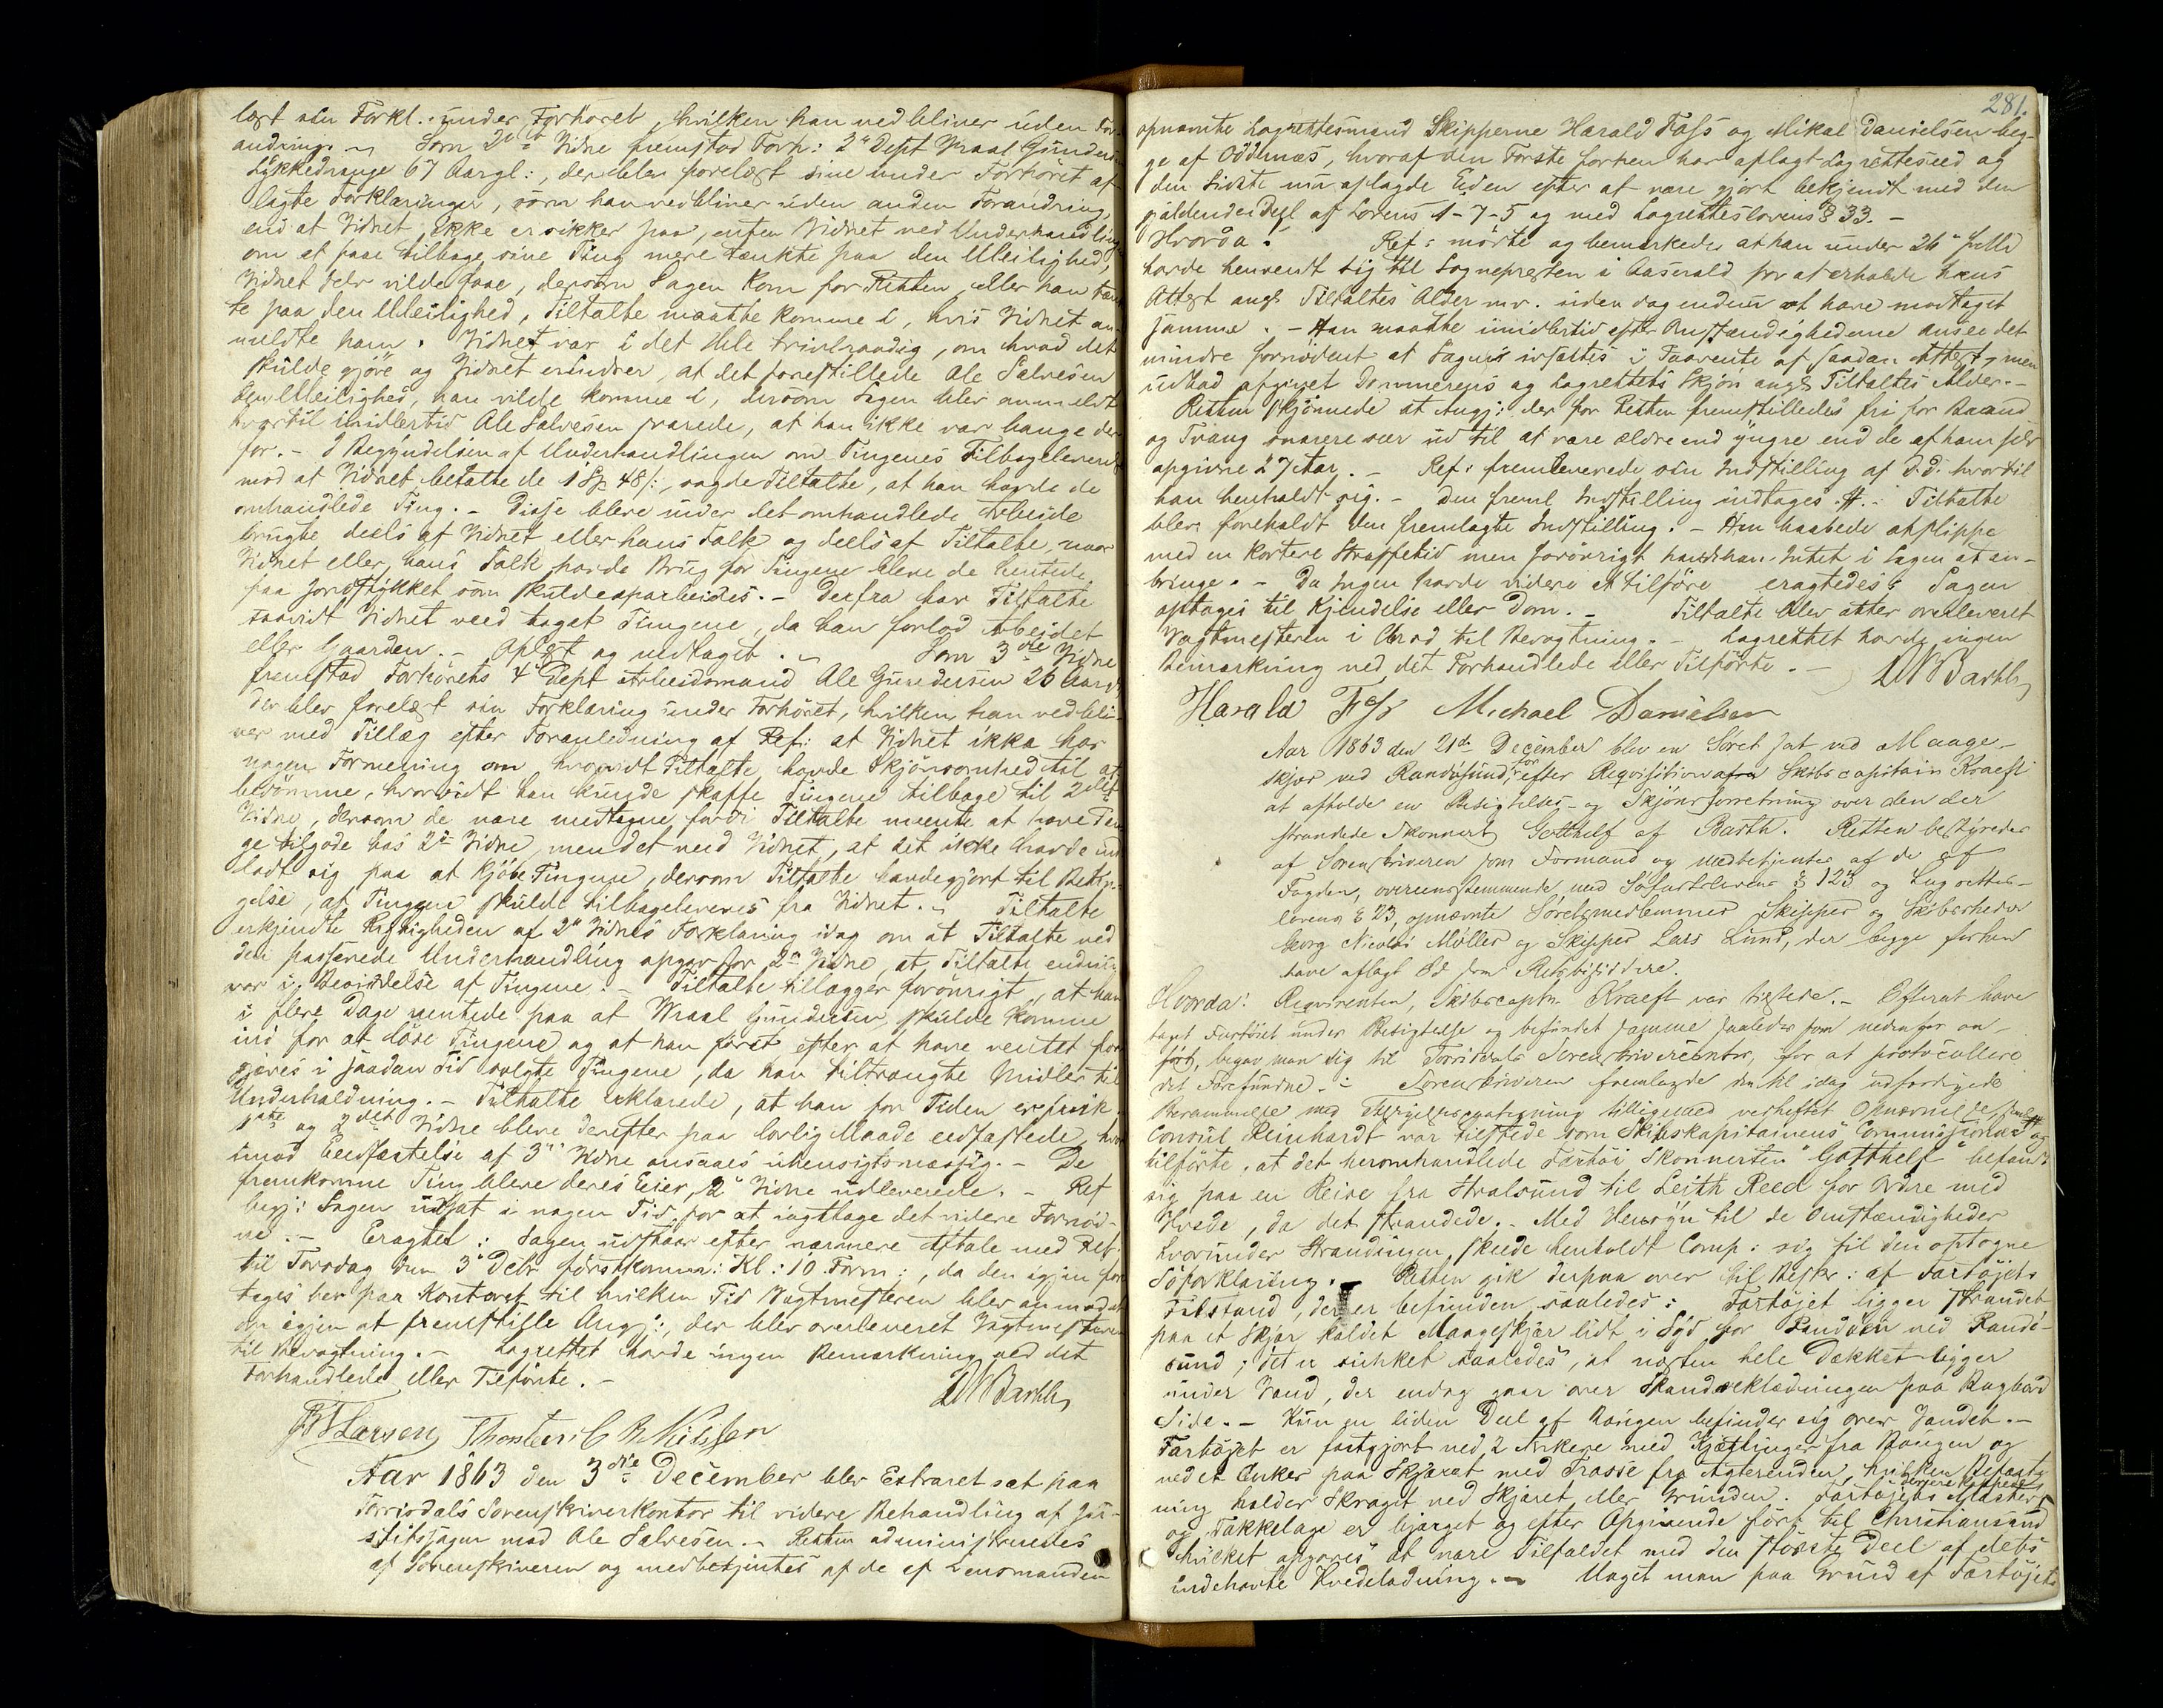 læst sin Forkl. under Forhöret, hvilken han vedbliver uden For-
andring. - Som 2det Vidne fremstod Forh: 2n Dept Wraal Gunders.
Lykkedrange 67 Aargl:, der blev forelæst sine under Forhöret af-
lagte Forklaringer, som han vedbliver uden anden Forandring,
end at Vidnet ikke er sikker paa, enten Vidnet ved Underhandlingen
om at faae tilbage sine Ting mere tænkte paa den Uleilighed,
Vidnet selv vilde faae, dersom Sagen kom for Retten, eller han tænk
te paa den Uleilighed, Tiltalte maatte komme i, hvis Vidnet an-
meldte ham. Vidnet var i det Hele tvivlraadig, om hvad det
skulde gjöre og Vidnet erindrer, at det forestillede Ole Salvesen
den Uleilighed, han vilde komme i, dersom Sagen blev anmeldt
hvortil imidlertid Ole Salvesen svarede, at han ikke var bange der-
for. - I Begyndelsen af Underhandlingen om Tingenes Tilbagelevering
mod at Vidnet betalte de 1 Sp 48 s:, sagde Tiltalte, at han havde de
omhandlede Ting. - Disse bleve under det omhandlede Arbeide
brugte deels af Vidnet eller hans Folk og deels af Tiltalte, naar
Vidnet eller hans Folk havde Brug for Tingene bleve de hentede
paa Jordstykket som skulde oparbeides. - Derfra har Tiltalte
saavidt Vidnet veed taget Tingene, da han forlod Arbeidet
eller Gaarden. - Oplæst og vedtaget. - Som 3die Vidne
fremstod Forhörets 4d Dept Arbeidsmand Ole Gundersen 26 Aar gl
der blev forelæst sin Forklaring under Forhöret, hvilken han vedbli-
ver med Tillæg efter Foranledning af Ref: at Vidnet ikke har
nogen Formening om hvorvidt Tiltalte havde Skjönsomhed til at
bedömme, hvorvidt han kunde skaffe Tingene tilbage til 2det
Vidne, dersom de vare medtagne fordi Tiltalte meente at have Pen
ge tilgode hos 2d Vidne, men det veed Vidnet, at det ikke havde ind
ladt sig paa at kjöbe Tingene, dersom Tiltalte havde gjort til Betin-
gelse, at Tingene skulde tilbageleveres fra Vidnet. - Tiltalte
erkjendte Rigtigheden af 2d Vidnes Forklaring idag om at Tiltalte ved
den passerede Underhandling opgav for 2d Vidne, at Tiltalte endnu
var i Besiddelse af Tingene. - Tiltalte tillægger forövrigt, at han
i flere Dage ventede paa at Wraal Gundersen skulde komme
ind for at löse Tingene og at han först efter at have ventet for
gjæves i saadan Tid solgte Tingene, da han tiltrængte Midler til
Underholdning. - Tiltalte erklærede, at han for Tiden er frisk.
1ste og 2det Vidne bleve derefter paa lovlig Maade eedfæstede, hvor
imod Eedfæstelse af 3d Vidne ansaaes uhensigtsmæssig. - De
fremkomne Ting bleve deres Eier, 2d Vidne udleverede. - Ref
begj: Sagen udsat i nogen Tid for at iagttage det videre Fornöd-
ne. - Eragtet: Sagen udstaar efter nærmere Aftale med Ref:
til Torsdag den 3d Decbr förstkomm: Kl: 10 Form:, da den igjen for
tages her paa Kontoret til hvilken Tid Vagtmesteren blev anmodet
om igjen at fremstille Angj:, der blev overleveret Vagtmesteren
til Bevogtning. - Lagrettet havde ingen Bemærkning ved det
Forhandlede eller Tilförte. -
DWBarth
Larsen Thorsten C B Nilssen
Aar 1863 den 3die December blev Extraret sat paa
Torrisdals Sorenskriverkontor til videre Behandling af Ju-
stitssagen mod Ole Salvesen. - Retten administreredes
af Sorenskriveren og medbetjentes af de af Lensmanden
281.
opnævnte Lagrettesmænd Skipperne Harald Foss og Mikal Danielsen beg-
ge af Oddernæs, hvoraf den Förste forhen har aflagt Lagretteseed og
den Sidste nu aflagde Eiden efter at være gjort bekjendt med den
gjældende Deel af Lovens 1-7-5 og med Lagretteslovens § 33. -
Hvorda: Ref: mödte og bemærkede, at han under 26d f. Md
havde henvendt sig til Sognepresten i Aaseral for at erholde hans
Attest ang. Tiltaltes Alder mv. uden dog endnu at have modtaget
samme. - Han maatte imidlertid efter Omstændighederne ansee det
mindre fornödent at Sagen udsattes i Paavente af saadan Attest, men
udbad afgivet Dommerens og Lagrettets Skjön ang. Tiltaltes Alder. -
Retten skjönnede at Angj: der for Retten fremstilledes fri for Baand
og Tvang snarere saae ud til at være ældre end yngre end de af ham selv
opgivne 27 Aar. - Ref: fremleverede sin Indstilling af D.D. hvortil
han henholdt sig. - Den freml Indstilling indtages #. - Tiltalte
blev foreholdt den fremlagte Indstilling. - Han haabede at slippe
med en kortere Straffetid men forövrigt havde han Intet i Sagen at an-
bringe. - Da Ingen havde videre at tilföre eragtedes: Sagen
optages til Kjendelse eller Dom. - Tiltalte blev atter overleveret
Vagtmesteren i Chrsd til Bevogtning. - Lagrettet havde ingen
Bemærkning ved det Forhandlede eller Tilförte. -
DWBarth
Harald Foss Michael Danielsen
Aar 1863 den 21de December blev en Söret sat ved Maage-
skjær ved Randösund, for efter Reqvisition afra Skibscapitain Kraeft
at afholde en Besigtelses- og Skjönsforretning over den der
strandede Skonnert Gotthelf af Barth. Retten bestyredes
af Sorenskriveren som Formand og medbetjentes af de af
Fogden, overensstemmende med Söfartslovens § 123 og Lagrettes-
lovens § 23, opnævnte Söretsmedlemmer Skipper og Skibsrheder
Georg Nicolai Møller og Skipper Lars Lund, der begge forhen
have aflagt Ed som Retsbisiddere.
Hvorda: Reqvirenten, Skibscaptn Kraeft var tilstede. - Efterat have
taget Fartöiet under Besigtelse og befundet samme saaledes som nedenfor an-
fört, begav man sig til Torrisdals Sorenskrivercontor, for at protocollere
det Forefundne. - Sorenskriveren fremlagde den til idag udfærdigede
Berammelse med Forkyndelsespaategning tilligemed vedheftet Opnævnelse,
Consul Reinhardt var tilstede som Skibskapitainens Commissionær og
tilförte, at det heromhandlede Fartöi Skonnerten "Gotthelf" befandt
sig paa en Reise fra Stralsund til Leith Reed for Ordre med
Hvede, da det strandede. - Med Hensyn til de Omstændigheder
hvorunder Strandingen skeede henholdt Comp: sig til den optagne
Söforklaring. - Retten gik derpaa over til Beskr: af Fartöjets
Tilstand, der er befunden saaledes: Fartöjet ligger strandet
paa et Skjær kaldet Maageskjær lidt i Syd for Randöen ved Randö-
sund; det er sunket saaledes, at næsten hele Dækket ligger
under Vand, der endog gaar over Skandseklædningen paa Bagbord
Side. - Kun en liden Deel af Bougen befinder sig over Vandet. -
Fartöjet er fastgjort ved 2 Ankere med Kjættinger fra Bougen og
ved et Anker paa Skjæret med Trosse fra Agterenden, hvilken Befæst-
ning holder Skroget ved Skjæret eller Grunden. Fartöjets Master
og Takkelage er bjærget og efter Opgivende fört til Christiansand
hvilket opgaves at være Tilfældet med den störste Deel af dets
indehavte Hvedeladning. - Uagtet man paa Grund af Fartöjets